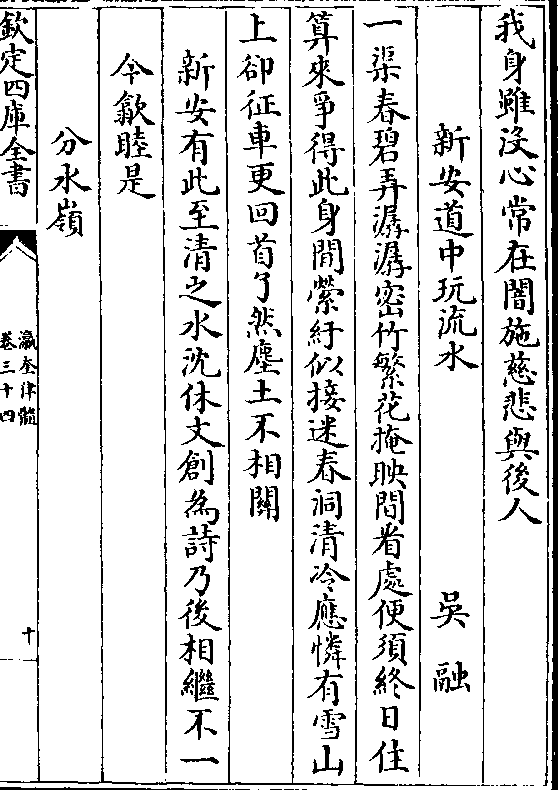 我身雖没心常在闇施慈悲與後人
新安道中玩流水 吳融
一渠春碧弄潺潺密竹繁花掩映間㸔處便須終日住
算來爭得此身閒縈紆似接迷春洞清冷應憐有雪山
上卻征車更回首了然塵土不相關
新安有此至清之水沈休文創為詩乃後相繼不一
今歙睦是
分水嶺
欽定四庫全書
瀛奎律髓
卷三十四
十